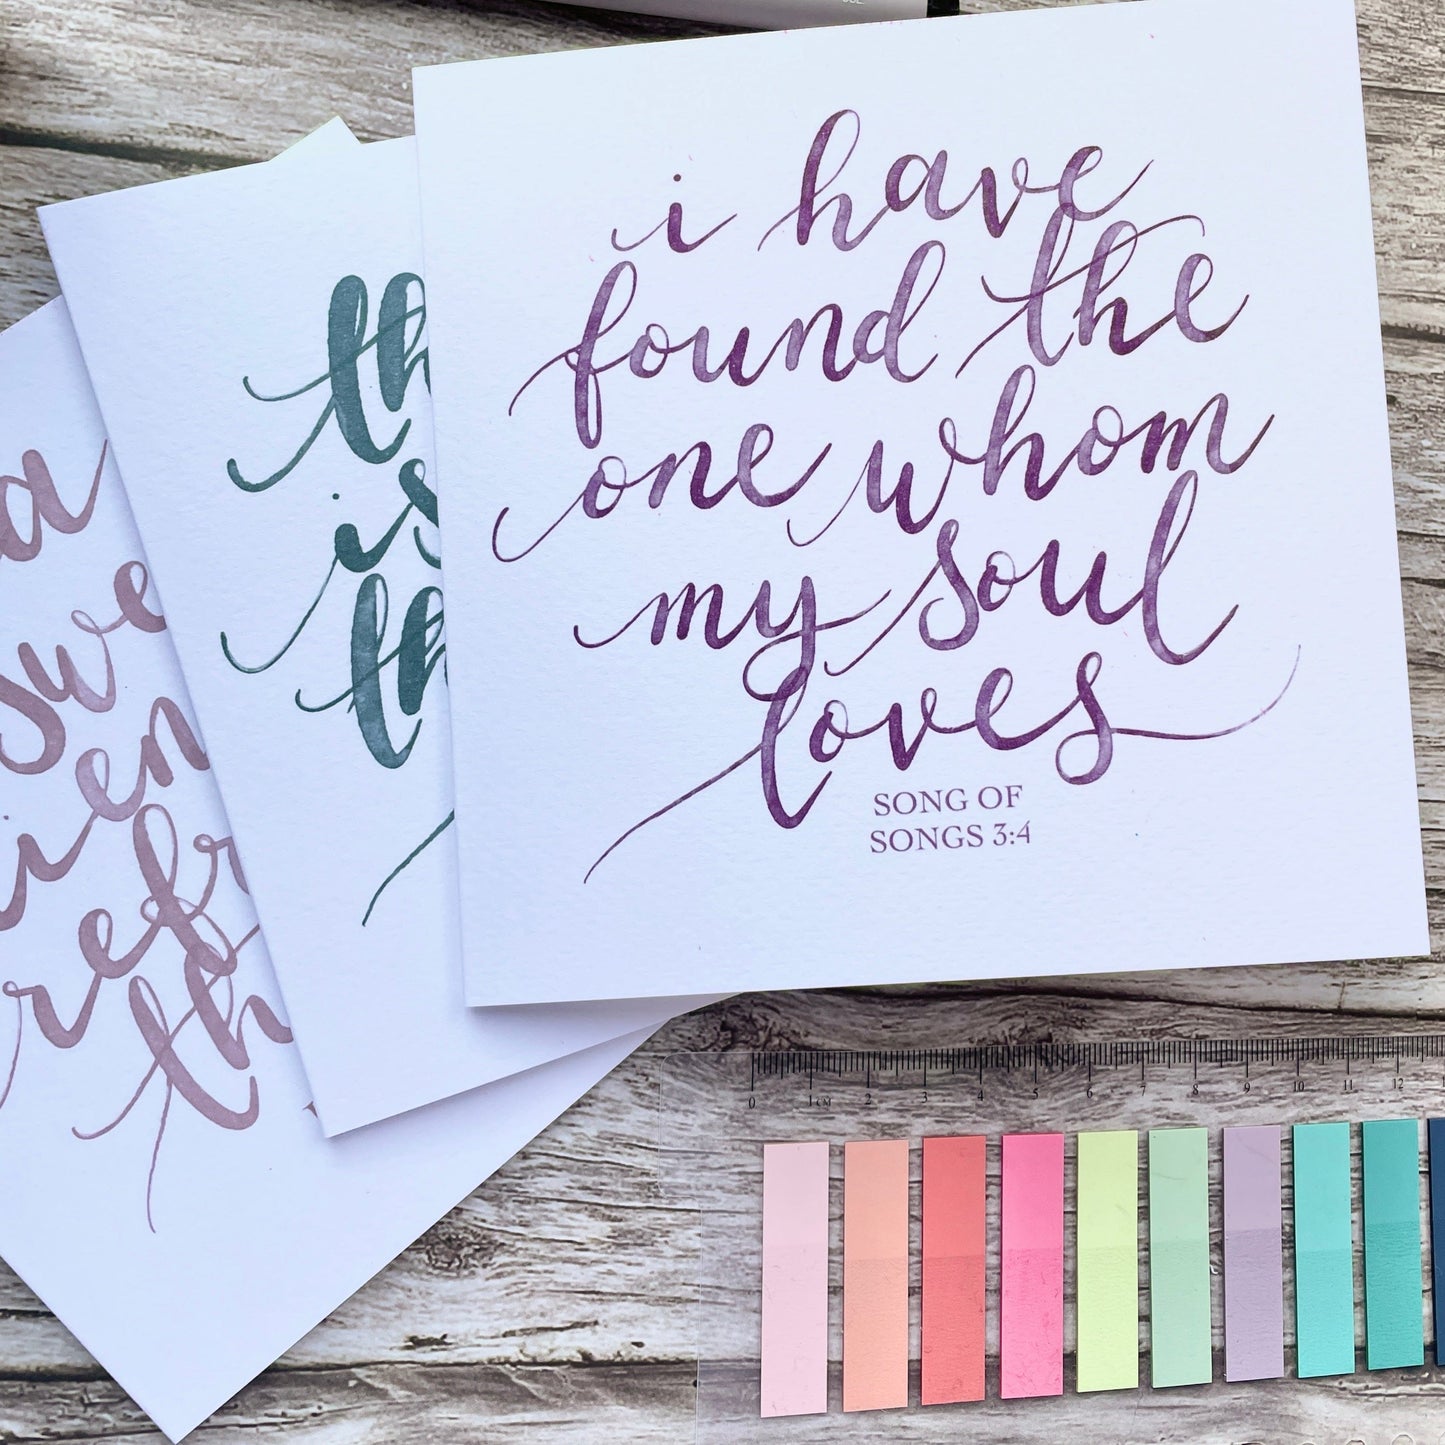 i have
found the
one whom
my soul
loves
SONG OF
SONGS 3:4
th
is
th
a
swe
ien
refr
th
0 1 CM 2 3 4 5 6 7 8 9 10 11 12